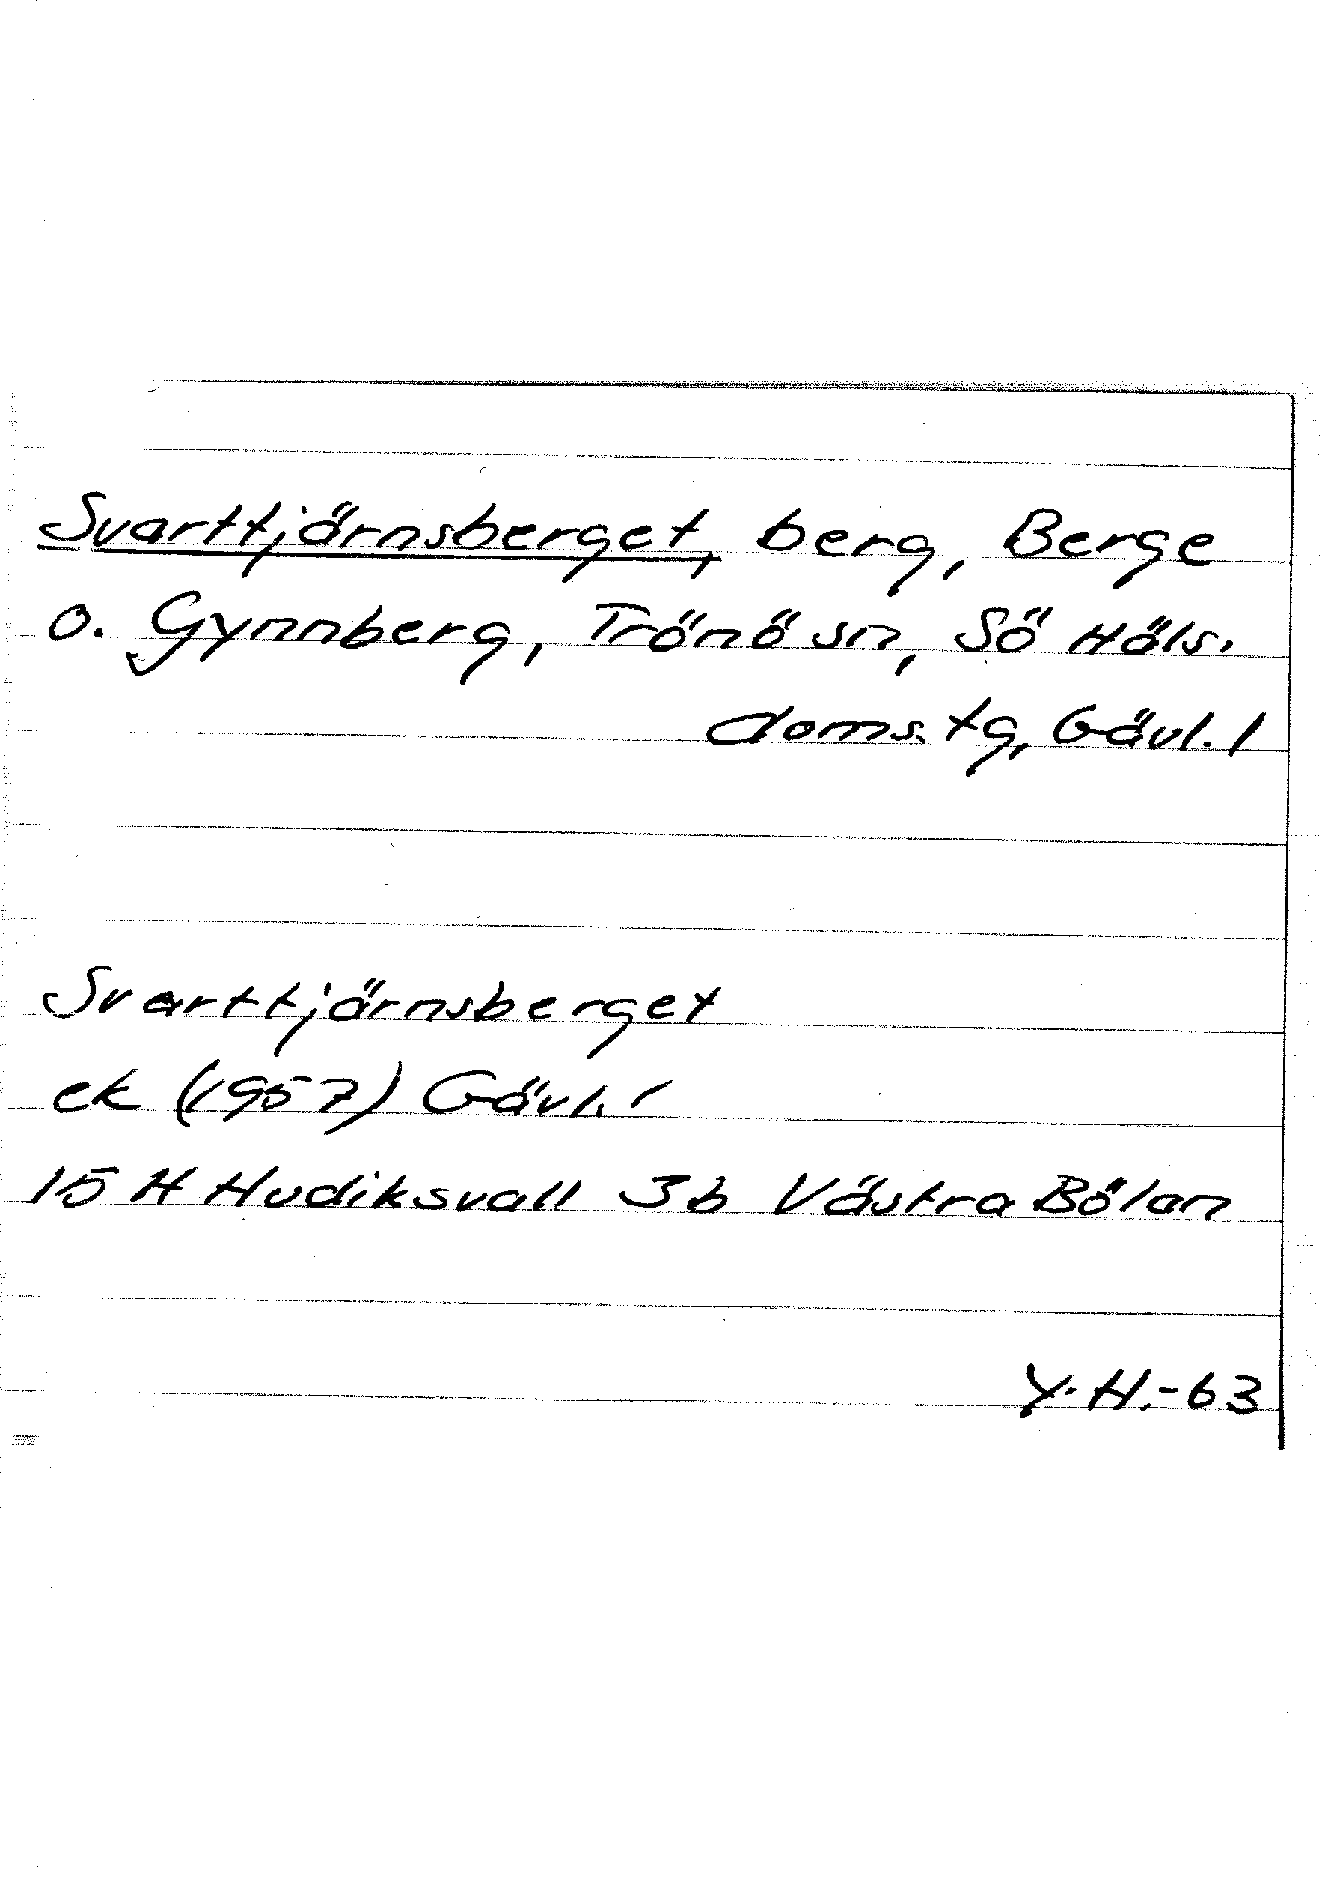 Svarttjärnsberget, berg, Berge
o. Gynnberg, Trönö sn, Sö Häls.
doms. tg, Gävl. l
Svarttjärnsberget
ek (1957) Gävl. l
15 H Hudiksvall 3b Västra Bölan
Y. H. -63